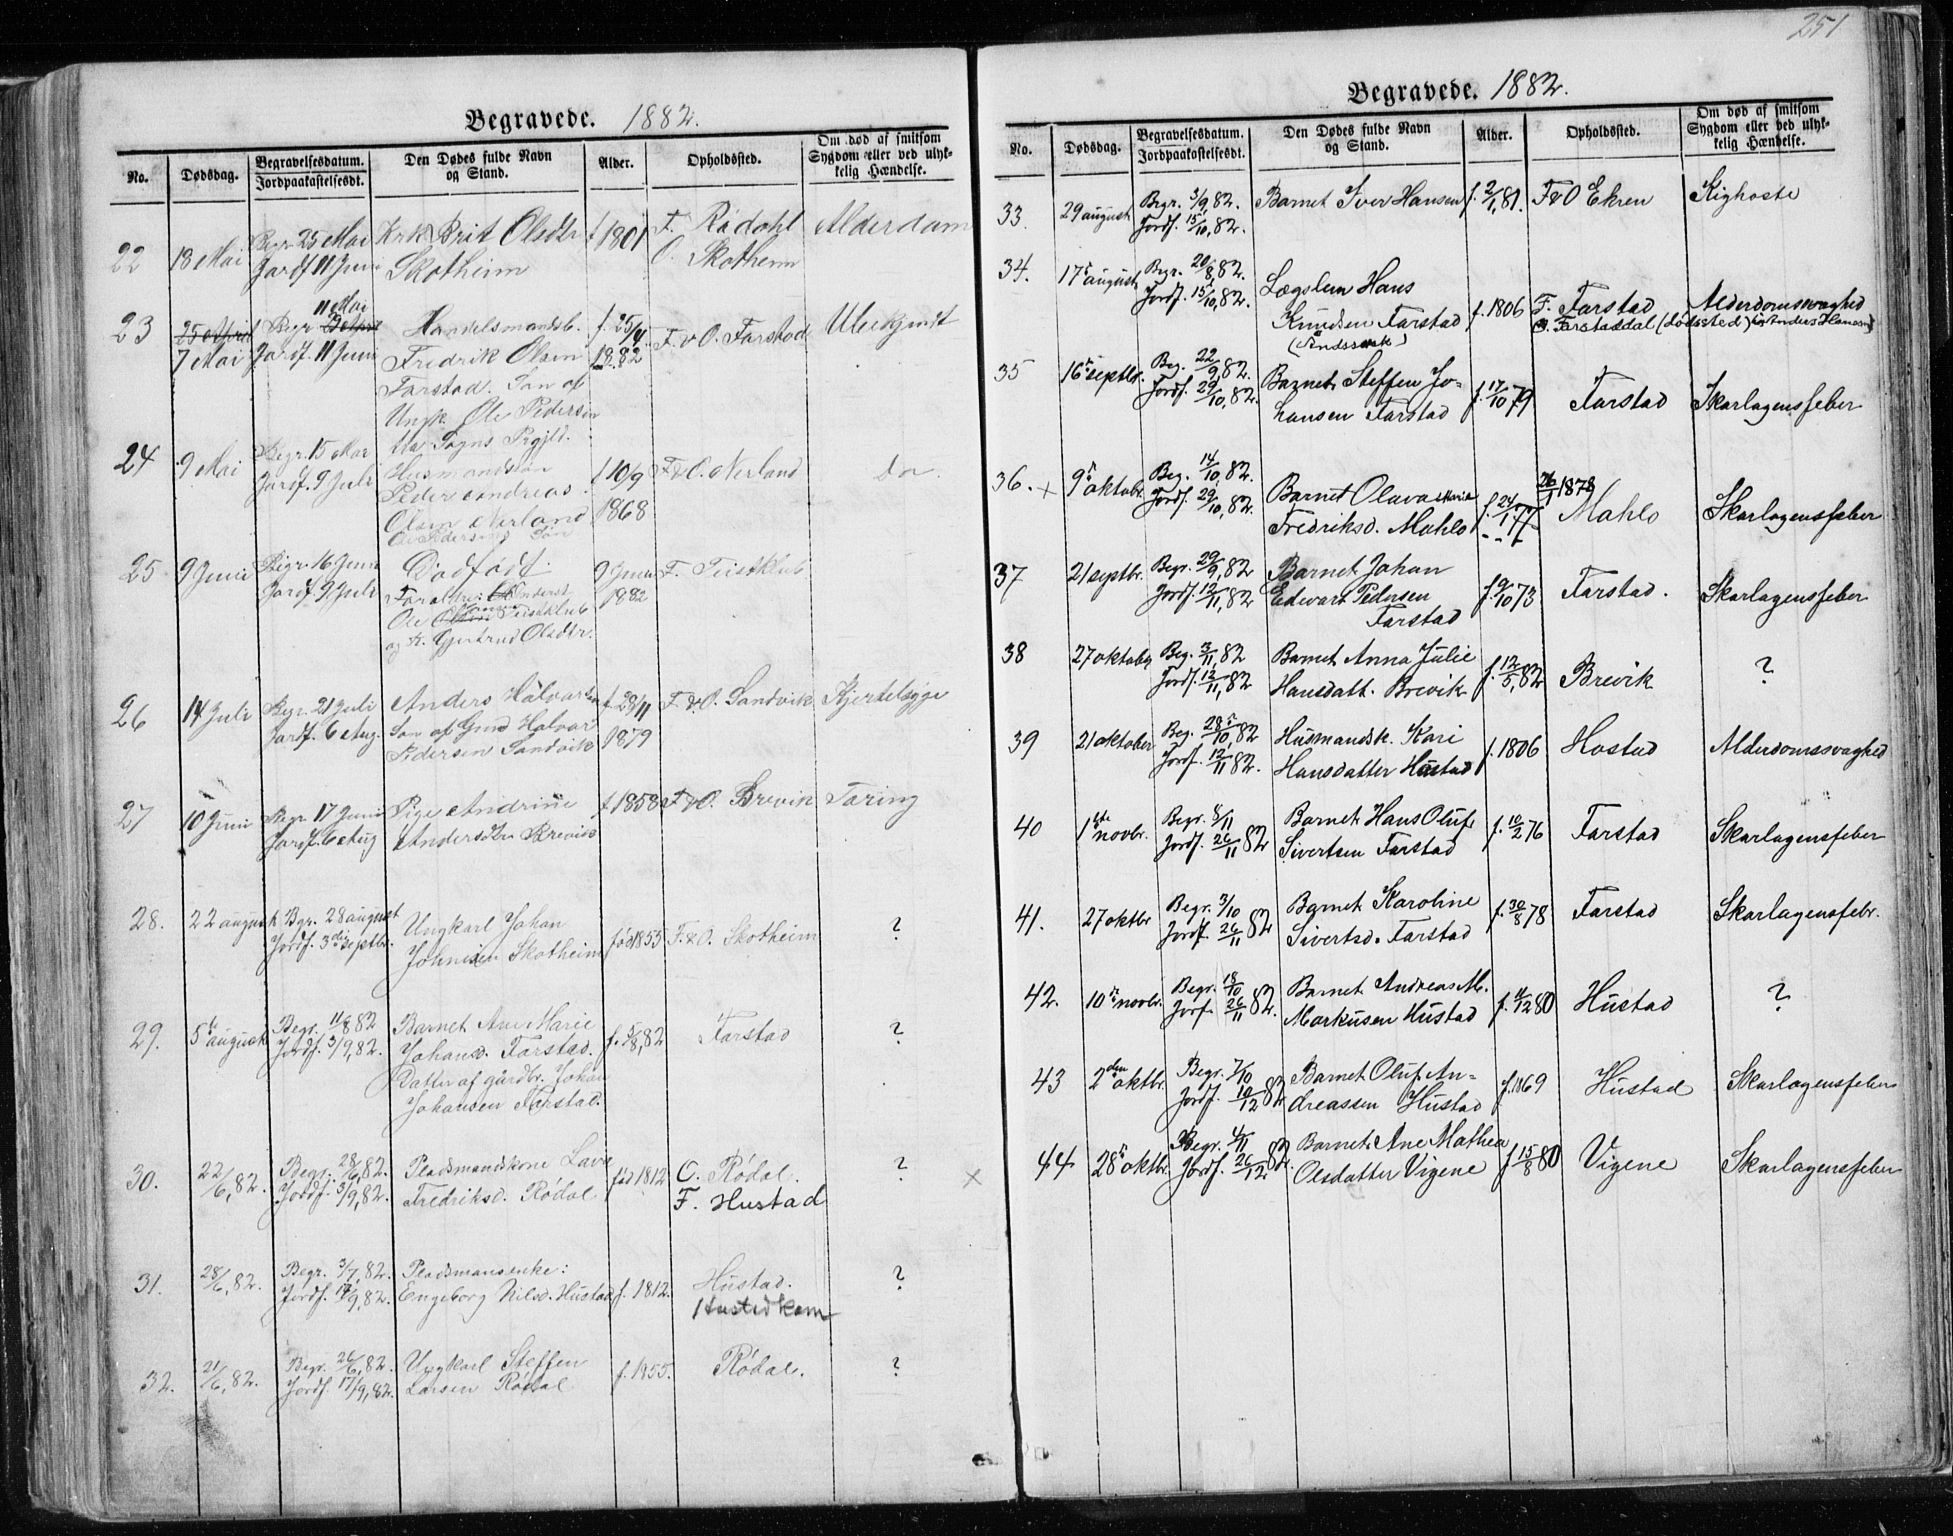 251
Begravede. 1882.
No. Dødsdag. Begravelsesdatum. Jordpaakastelsesdt. Den Dødes fulde Navn og Stand. Alder. Opholdssted. Om død af smitsom Sygdom eller ved ulykkelig Hændelse.
22 18 Mai Begr. 25 Mai Brit Olsdtr f 1801 F. Rødahl Alderdom
Jordf 11 Juni Skotheim O. Skotheim
11 Mai
23 25 April Begr Handelsmandsb. f. 25/4 F. & O. Farstad Ubekjendt
7 Mai Jordf. 11 Juni Fredrik Olsen 1882
Farstad. Søn af
Ungk. Ole Pedersen
Sogns Prgjld.
24 9 Mai Begr. 15 Mai Husmandssøn f 10/9 F. & O. Nerland Do
Jordf. 9 Juli Peder Andreas 1868
Olsen Nerland
Ole Pedersens Søn
25 9 Juni Begr. 16 Juni Dødfødt 9 Juni F. Teistklub
Jordf. 9 Juli Foreldre: 1882
Ole Teistklub
og K. Gjertrud Olsdtr.
26 14 Juli Begr. 21 Juli Anders Halvorsen f 28/11 F. & O. Sandvik Kjertelsyge
Jordf. 6 Aug. Søn af Gmd Halvor 1879
Pedersen Sandvik
27 10 Juni Begr 17 Juni Pige Andrine f 1858 F & O. Brevik Tæring
Jordf. 6 Aug Andersdtr Brevik
28. 22 august Begr. 28 august Ungkarl Johan
Jordf. 3die septbr. Johnsen Skotheim fød 1853 F. & O. Skotheim ?
29. 5te august Begr. 11/8 82 Barnet Ane Marie
Jordf. 3/9, 82. Johansd. Farstad. f. 5/8, 82 Farstad ?
Datter af gårdbr. Johan
Johansen Farstad.
30. 22/6, 82. Begr. 28/6, 82. Pladsmandskone Lava fød 1812 O. Rødal. ?
Jordf. 3/9, 82. Fredriksd. Rødal F. Hustad
31. 28/6, 82. Begr. 3/7, 82. Pladsmansenke: Hustad. ?
Jordf. 17/9, 82. Engeborg Nilsd. Hustad f. 1812. Hustedkom
32. 21/6, 82. Begr. 26/6, 82. Ungkarl Steffen f. 1855. Rødal. ?
Jordf. 17/9, 82. Larsen Rødal
Begravede. 1882.
No. Dødsdag. Begravelsesdatum. Jordpaakastelsesdt. Den Dødes fulde Navn og Stand. Alder. Opholdssted. Om død af smitsom Sygdom eller ved ulykkelig Hændelse.
33. 29 august Begr. 3/9, 82. Barnet Iver Hansen f. 2/1, 81. F & O Ekren Kighoste
Jordf. 15/10, 82.
34. 17de august Begr. 20/8, 82. Lægslem Hans
Jordf. 15/10, 82. Knudsen Farstad f. 1806 F. Farstad Alderdomssvaghed
(Sindssvak) O. Farstaddal (dødssted) Anders Hansen
35 16de septbr. Beg. 22/9, 82. Barnet Steffen Jo-
Jordf. 29/10, 82. hansen Farstad f. 17/10 79 Farstad Skarlagensfeber
36. x 9de oktobr. Beg. 14/10, 82. Barnet Olava Marie 26/1 1878
Jordf. 29/10, 82. Fredriksd. Mahlo f. 24/1 77 Mahlo Skarlagensfeber
37 21 septbr. Begr. 29/9, 82 Barnet Johan
Jordf. 12/11, 82 Edvart Pedersen f. 9/10 73 Farstad. Skarlagensfeber
Farstad
38 27 oktober Beg. 3/11, 82 Barnet Anna Julie f. 12/5, 82 Brevik ?
Jordf. 12/11, 82 Hansdatt. Brevik
39 21 oktober Beg. 28/10, 82 Husmandsk. Kari f. 1806 Hostad Alderdomssvaghed
Jordf. 12/11 82. Hansdatter Hustad
40 1ste novbr. Begr. 8/11 Barnet Hans Oluf f. 10/2 76 Farstad Skarlagensfeber
Jordf. 26/11 82 Sivertsen Farstad
41. 27 oktbr Begr. 3/10 Barnet Karoline f. 30/8 78 Farstad Skarlagensfebr.
Jordf. 26/11 82 Sivertsd. Farstad
42. 10de novbr. Begr. 18/10 Barnet Andreas M. f. 11/12 80 Hustad ?
Jorf. 26/11 82. Markusen Hustad
43 2den oktbr. Begr. 7/10 Barnet Oluf An- f. 1869 Hustad Skarlagensfeber
Jordf. 10/12 82 dreassen Hustad
x 44 28de oktbr. Begr. 4/11 Barnet Ane Mathea f 15/8 80 Vigene Skarlagensfeber
Jordf. 26/12 82. Olsdatter Vigene